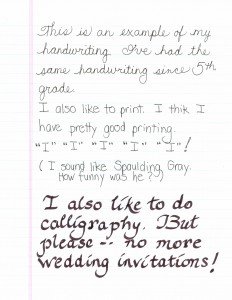 This is an example of my
handwriting. I've had the
same handwriting since 5th
grade.
I also like to print. I thik I
have pretty good printing.
"I" "I" "I" "I" "I"!
( I sound like Spaulding Gray.
How funny was he?!)
I also like to do
calligraphy. But
please -- no more
wedding invitations!